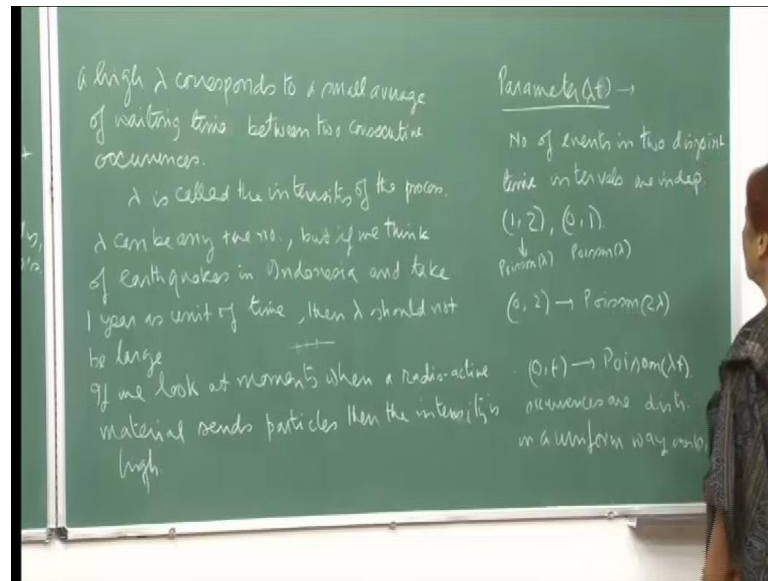 a high λ corresponds to a small average
of waiting time between two consecutive
occurences.
λ is called the intensities of the process.
λ can be any +ve no., but if we think
of earthquakes in Indonesia and take
1 year as unit of time, then λ should not
be large
If we look at moments when a radio-active
material sends particles then the intensity is
high.
Parameter(λt) →
No of events in two disjoint
time intervals are indep.
(1, 2), (0, 1).
↓
Poisson(λ) Poisson(λ)
(0, 2) → Poisson(2λ)
(0, t) → Poisson(λt)
occurences are distr.
in a uniform way